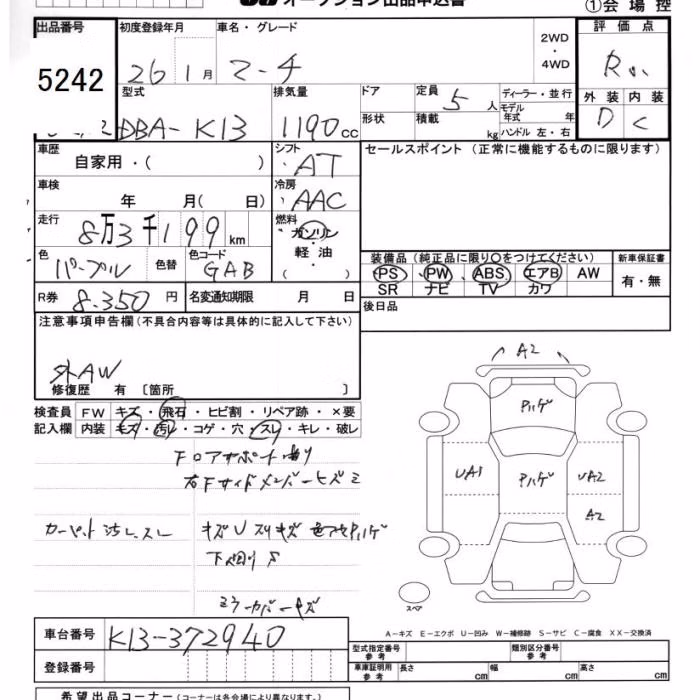 オークション出品申込書
①会場控
出品番号 初度登録年月 車名・グレード 2WD・4WD 評価点
5242 26 1月 マーチ R
型式 排気量 ドア 定員 5人 ディーラー・並行 外装 内装
DBA-K13 1190cc 形状 積載 kg モデル年式 年 ハンドル 左・右 D C
車歴 自家用・( ) シフト ・AT セールスポイント (正常に機能するものに限ります)
車検 年 月( 日) 冷房 ・AAC
走行 8万3千199km 燃料 ガソリン 軽油 ・( )
色 パープル 色替 色コード GAB
装備品 (純正品に限り○をつけてください) 新車保証書
PS PW ABS エアB AW 有・無
SR ナビ TV カワ
R券 8.350円 名変通知期限 月 日 後日品
注意事項申告欄 (不具合内容等は具体的に記入して下さい)
外AW
修復歴 有 〔箇所 〕
A2
検査員 FW キズ・飛石・ヒビ割・リペア跡・×要
記入欄 内装 キズ・汚レ・コゲ・穴・スレ・キレ・破レ
Pハゲ
FロアサポートUり
右Fサイドメンバーヒズミ
UA1 Pハゲ UA2
A2
カーペット汚レ、スレ キズUスリキズ 色アセPハゲ
下廻りS
ミラーカバーキズ
スペア
A-キズ E-エクボ U-凹み W-補修跡 S-サビ C-腐食 XX-交換済
車台番号 K13-372940
型式指定番号 参考 類別区分番号 参考
登録番号 車庫証明用 参考 長さ cm 幅 cm 高さ cm
希望出品コーナー (コーナーは各会場により異なります。)